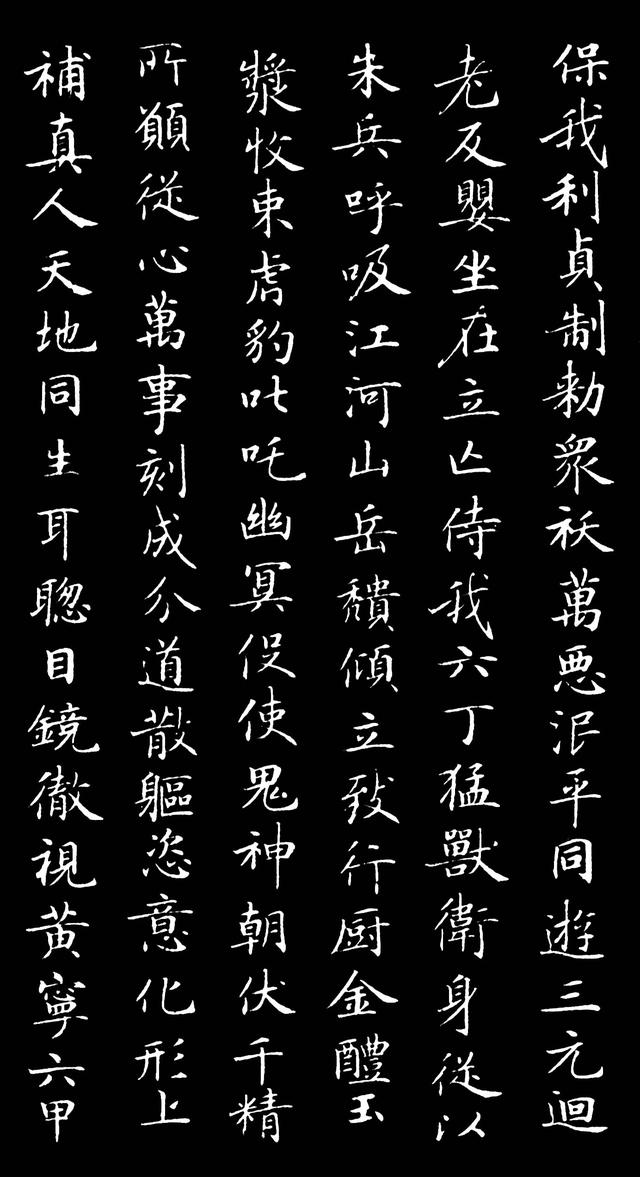 保我利貞制勑衆祅萬惡泯平同遊三元迴
老反嬰坐在立亾侍我六丁猛獸衛身從以
朱兵呼吸江河山岳穨傾立致行厨金醴玉
漿收束虐豹叱吒幽冥役使鬼神朝伏千精
所願從心萬事刻成分道散軀恣意化形上
補真人天地同生耳聦目鏡徹視黃寧六甲